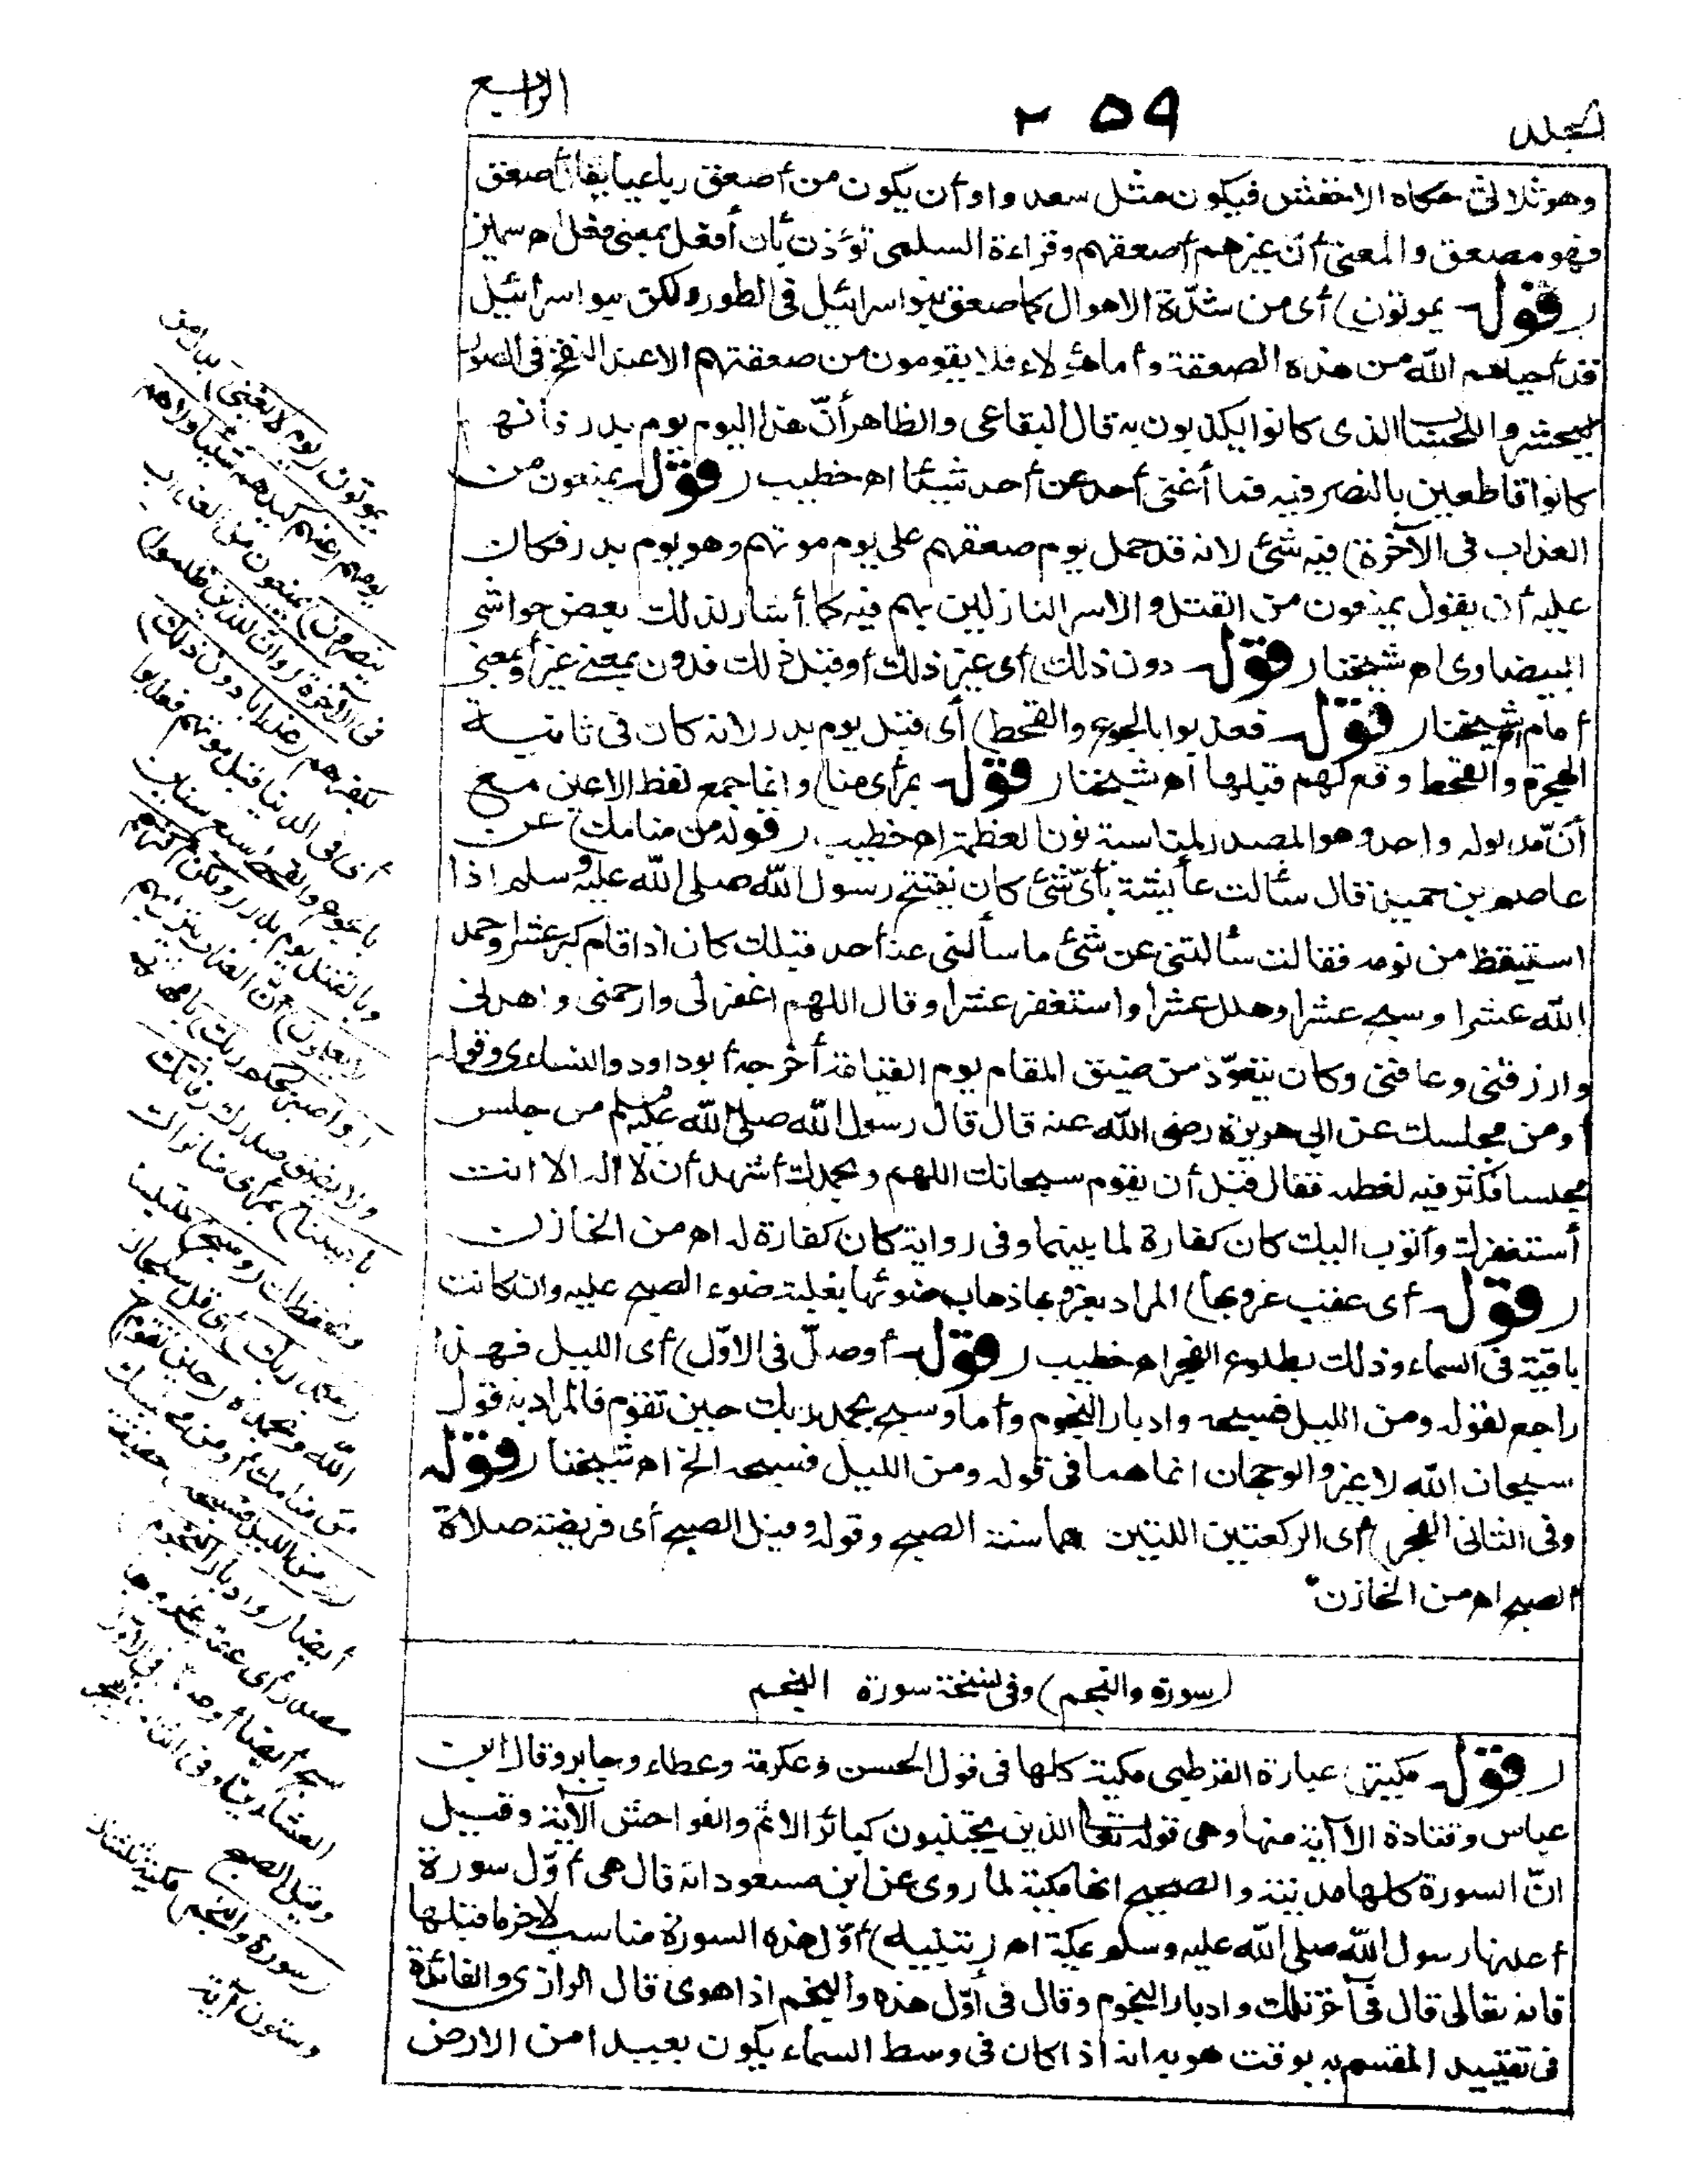 المجلد
٢٥٩
الرابع
وهو ثلاثى حكاه الاخفش فيكون مثل سعدوا وأن يكون من أصعق رباعيا يقال أصعق
فهو مصعق والمعنى أن غيرهم أصعقهم وقراءة السلمى تؤذن بأن أفعل بمعنى فعل اه سمين
(قوله يموتون) أى من شدّة الاهوال كما صعق بنو اسرائيل فى الطور ولكن بنو اسرائيل
قد أحياهم الله من هذه الصعقة وأما هؤلاء فلا يقومون من صعقتهم الا عند النفخ فى الصور
ليحشروا للحساب الذى كانوا يكذبون به قال البقاعى والظاهر أنّ هذا اليوم يوم بدر فانهم
كانوا قاطعين بالنصر فيه فما أغنى أحد عن أحد شيئا اه خطيب (قوله يمنعون من
العذاب فى الآخرة) فيه شئ لانه قد حمل يوم صعقهم على يوم موتهم وهو يوم بدر فكان
عليه أن يقول يمنعون من القتل والاسر النازلين بهم فيه كما أشار لذلك بعض حواشى
البيضاوى اه شيخنا (قوله دون ذلك) أى غير ذلك أو قبل ذلك فدون بمعنى غير أو بمعنى
أمام اه شيخنا (قوله فعذبوا بالجوع والقحط) أى قبل يوم بدر لانه كان فى ثانية
الهجرة والقحط وقع لهم قبلها اه شيخنا (قوله بمرأى منا) وانما جمع لفظ الاعين مع
أنّ مدلوله واحد وهو المصدر لمناسبة نون العظمة اه خطيب (قوله من منامك) عن
عاصم بن حميد قال سألت عائشة بأىّ شئ كان يفتتح رسول الله صلى الله عليه وسلم اذا
استيقظ من نومه فقالت سألتنى عن شئ ما سألنى عنه أحد قبلك كان اذا قام كبر عشرا وحمد
الله عشرا وسبح عشرا وهلل عشرا واستغفر عشرا وقال اللهم اغفر لى وارحمنى واهدنى
وارزقنى وعافنى وكان يتعوّذ من ضيق المقام يوم القيامة أخرجه أبو داود والنساءى وقوله
أو من مجلسك عن ابى هريرة رضى الله عنه قال قال رسول الله صلى الله عليه وسلم من جلس
مجلسا فكثر فيه لغطه فقال قبل أن يقوم سبحانك اللهم وبحمدك أشهد أن لا اله الا انت
أستغفرك وأتوب اليك كان كفارة لما بينهما وفى رواية كان كفارة له اه من الخازن
(قوله أى عقب غروبها) المراد بغروبها ذهاب ضوئها بغلبة ضوء الصبح عليه وان كانت
باقية فى السماء وذلك بطلوع الفجر اه خطيب (قوله أو صلّ فى الاوّل) أى الليل فهذا
راجع لقوله ومن الليل فسبحه وادبار النجوم وأما وسبح بحمد ربك حين تقوم فالمراد به قول
سبحان الله لا غير والوجهان انما هما فى قوله ومن الليل فسبحه الخ اه شيخنا (قوله
وفى الثانى الفجر) أى الركعتين اللتين هما سنة الصبح وقوله وقيل الصبح أى فريضة صلاة
الصبح اه من الخازن
(سورة والنجم) وفى نسخة سورة النجم
(قوله مكية) عبارة القرطبى مكية كلها فى قول الحسن وعكرمة وعطاء وجابر وقال ابن
عباس وقتادة الا آية منها وهى قوله تعالى الذين يجتنبون كبائر الاثم والفواحش الآية وقيل
انّ السورة كلها مدنية والصحيح انها مكية لما روى عن ابن مسعود انه قال هى أوّل سورة
أعلنها رسول الله صلى الله عليه وسلم بمكة اه (تنبيه) أوّل هذه السورة مناسب لآخر ما قبلها
فانه تعالى قال فى آخر تلك وادبار النجوم وقال فى أوّل هذه والنجم اذا هوى قال الرازى والفائدة
فى تقييد المقسم به بوقت هويه انه اذا كان فى وسط السماء يكون بعيدا من الارض
يموتون (يوم لا يغنى) بدل من
يومهم (عنهم كيدهم شيئا ولا هم
ينصرون) يمنعون من العذاب
فى الآخرة (وان للذين ظلموا)
بكفرهم (عذابا دون ذلك)
أى فى الدنيا قبل موتهم فعذبوا
بالجوع والقحط سبع سنين
وبالقتل يوم بدر (ولكن أكثرهم
لا يعلمون) أنّ العذاب ينزل بهم
(واصبر لحكم ربك) بامهالهم
ولا يضق صدرك (فانك
بأعيننا) بمرأى منا نراك
ونحفظك (وسبح) متلبسا
(بحمد ربك) أى قل سبحان
الله وبحمده (حين تقوم)
من منامك أو من مجلسك
(ومن الليل فسبحه) حقيقة
أيضا (وادبار النجوم)
مصدر أى عقب غروبها
سبح أيضا أو صل فى الاول
العشاءين وفى الثانى الفجر
وقيل الصبح
(سورة والنجم) مكية ثنتان
وستون آية